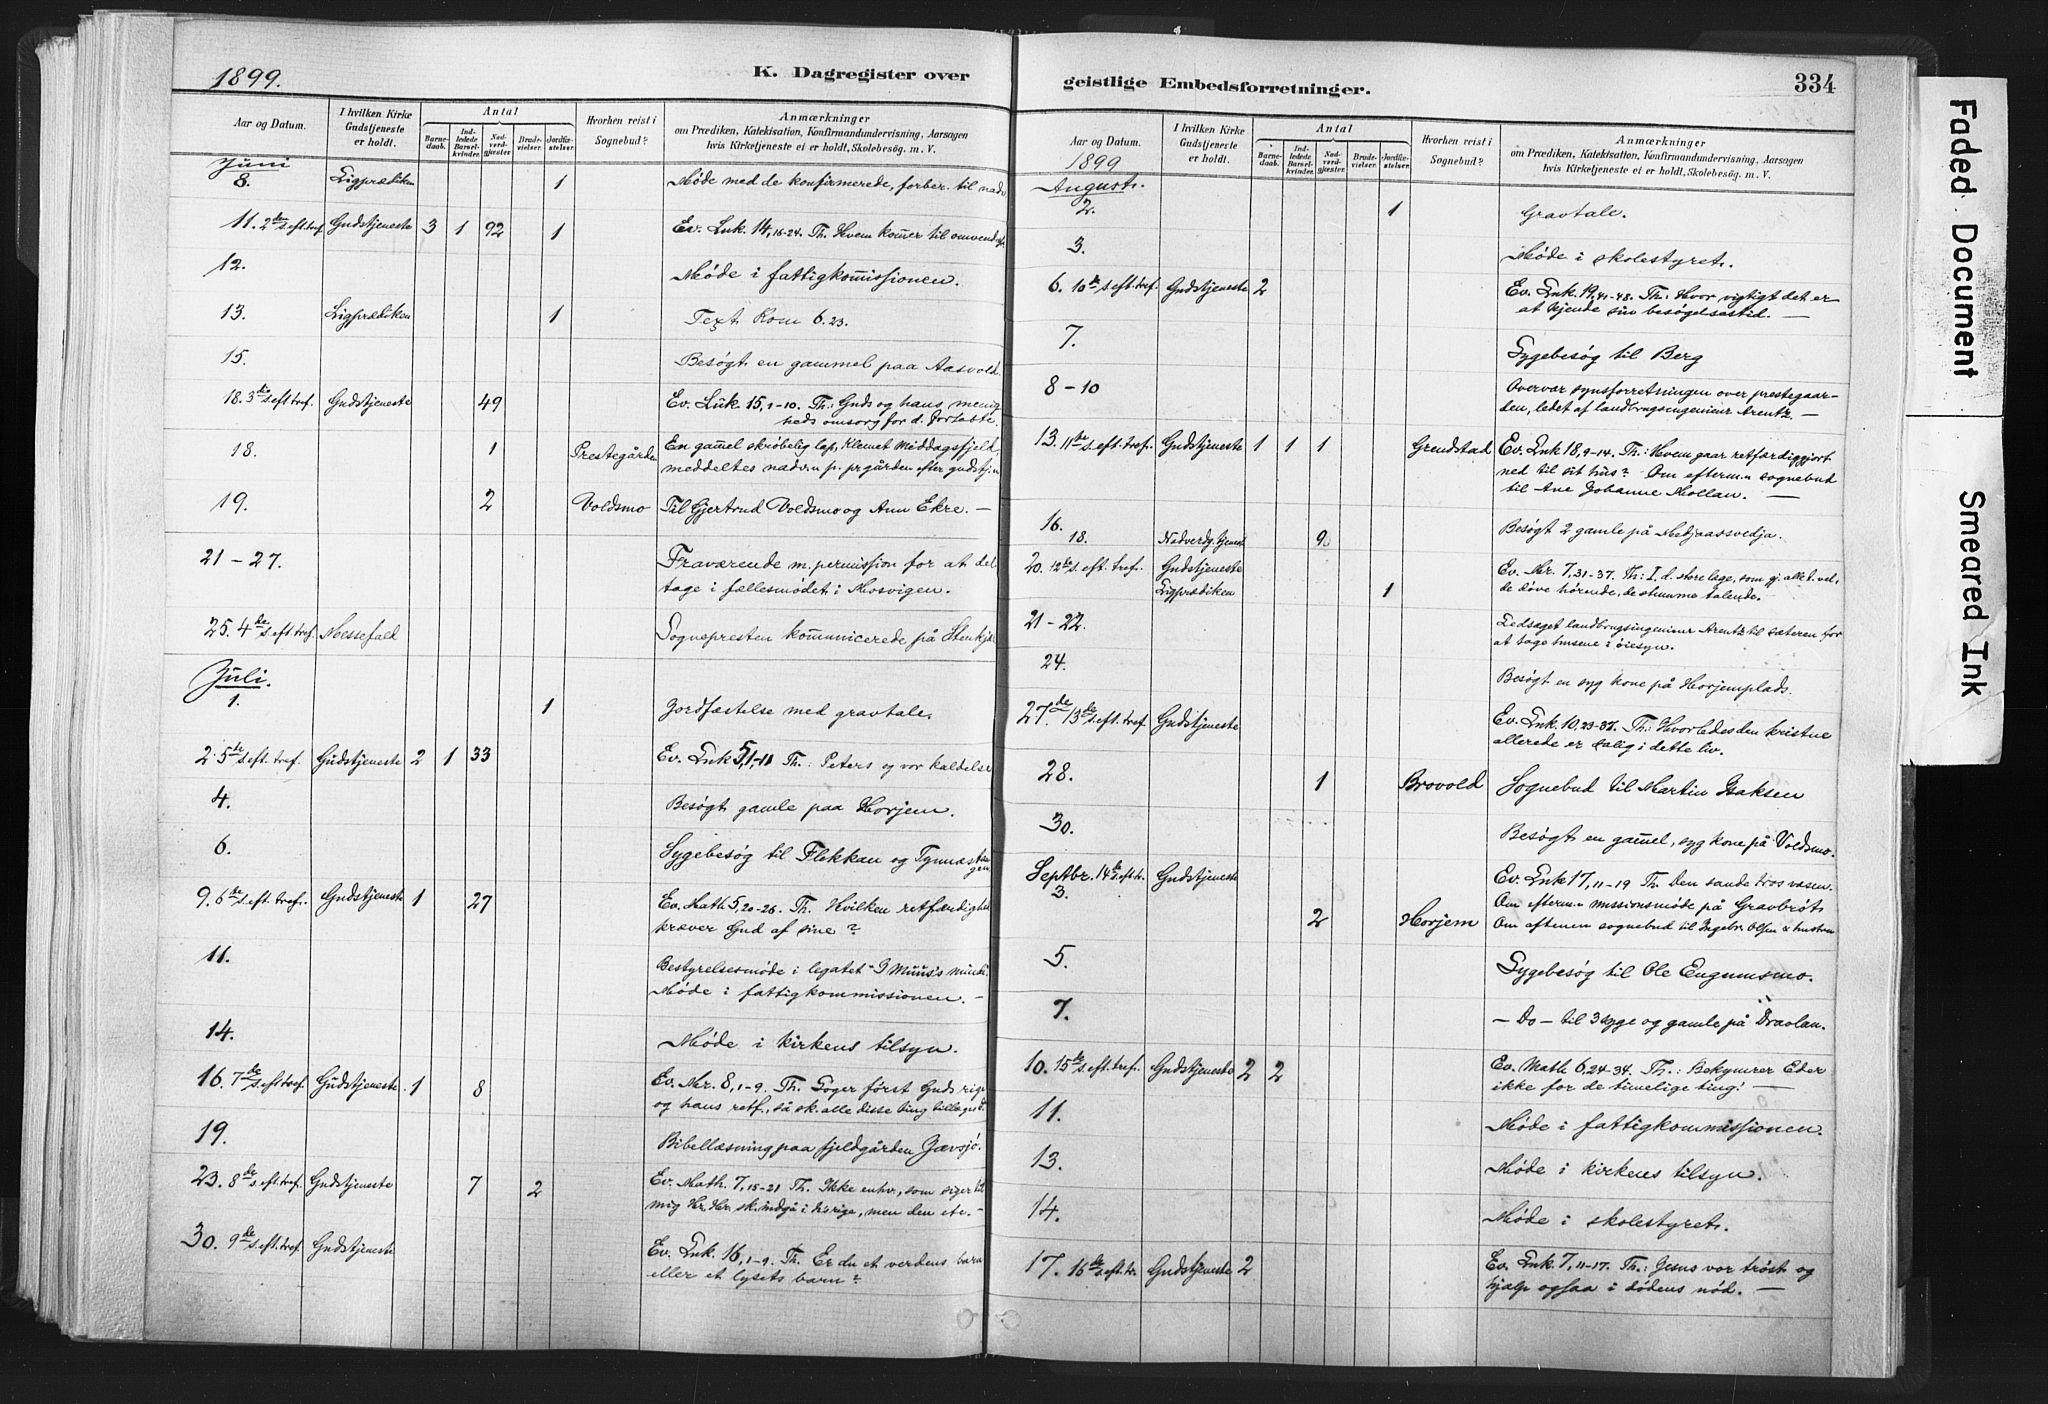 1899.
K. Dagregister over
Aar og Datum.
I hvilken Kirke Gudstjeneste er holdt.
Antal
Barnedaab.
Indledede Barselkvinder.
Nadverdgjester
Brudevielser.
Jordfæstelser.
Hvorhen reist i Sognebud?
Anmærkninger
om Prædiken, Katekisation, Konfirmandundervisning, Aarsagen
hvis Kirketjeneste ei er holdt, Skolebesøg. m. V.
Juni
8. Ligprædiken 1 Møde med de konfirmerede, forber. til nadv
11. 2den s. eft. tref. Gudstjeneste 3 1 92 1 Ev. Luk. 14, 16-24. Th. Hvem kom̅er til omvend
12. Møde i fattigkom̅issionen.
13. Ligprædiken 1 Text Rom 6.23.
15. Besøgt en gammel paa Aasvold.
18. 3die s. eft. tref. Gudstjeneste 49 Ev. Luk. 15, 1-10. Th: Guds og hans menig
heds omsorg for d. fortabte.
18. 1 Prestegården En gam̅el skrøbelig lap, Klemet Middagsfjeld,
meddeltes nadv.n p. pr.gården efter gudstj.n
19. 2 Voldsmo Til Gjertrud Voldsmo og Ann Ekre. —
21-27. Fraværende m. permission for at del
tage i fællesmødet i Mosvigen.
25. 4de s. eft. tref. Messefald Sognepresten kom̅unicerede på Stenkj
Juli.
1. 1 Jordfæstelse med gravtale.
2. 5te s. eft. tref. Gudstjeneste 2 1 33 Ev. Luk 5, 1-11 Th.: Peters og vor kaldelse
4. Besøgt gamle paa Horjem.
6. Sygebesøg til Flekkan og
9. 6te s. eft. tref. Gudstjeneste 1 27 Ev. Math 5, 20-26. Th. Hvilken retfærdighed
kræver Gud af sine?
11. Bestyrelsesmøde i legatet "J Muus's minde"
Møde i fattigkommissionen. —
14. Møde i kirkens tilsyn.
16. 7de s. eft tref. Gudstjeneste 1 8 Ev. Mr. 8, 1-9. Th. Søger først Guds rige
og hans retf., så sk. alle disse ting tillægges d.
19. Bibellæsning paa fjeldgården Jævsjø.
23. 8de s. eft. tref. Gudstjeneste 7 2 Ev. Math. 7, 15-21 Th. Ikke enhv., som siger til
mig Hr. Hr. sk. indgå i h.s rige, men den etc. —
30. 9de s. eft. tref. Gudstjeneste Ev. Luk. 16, 1-9. Th. Er du et verdens barn
eller et lysets barn?
geistlige Embedsforretninger.
334
Aar og Datum.
I hvilken Kirke Gudstjeneste er holdt.
Antal
Barnedaab.
Indledede Barselkvinder.
Nadverdgjester
Brudevielser.
Jordfæstelser.
Hvorhen reist i Sognebud?
Anmærkninger
om Prædiken, Katekisation, Konfirmandundervisning, Aarsagen
hvis Kirketjeneste ei er holdt, Skolebesøg. m. V.
1899
August.
2. 1 Gravtale.
3. Møde i skolestyret.
6. 10de s. eft. tref. Gudstjeneste 2 Ev. Luk. 19, 41-48. Th: Hvor vigtigt det er
at kjende sin besøgelsestid. —
7. Sygebesøg til Berg
8-10 Overvar synsforretningen over prestegaar-
den, ledet af landbrugsingeniør Arentz. —
13. 11te s. eft. tref. Gudstjeneste 1 1 1 Grundstad Ev. Luk 18, 9-14. Th: Hvem gaar retfærdiggjort
ned til sit hus? Om efterm.n sognebud
til Ane Johanne Mollan. —
16. Besøgt 2 gamle på
18. Nadverdg.tjenest 9
20. 12te s. eft. tref. Gudstjeneste Ev. Mr. 7, 31-37. Th: I. d. store læge, som gj. alt vel,
Ligprædiken 1 de døve hørende, de stumme talende. —
21-22. Ledsaget landbrugsingeniør Arentz til sæteren for
at tage husene i øiesyn.
24. Besøgt en syg kone på Horjemplads.
27de. 13de s. eft. tref. Gudstjeneste Ev. Luk. 10, 23-37. Th: Hvorledes den kristne
allerede er salig i dette liv.
28. 1 Brovold Sognebud til Martin Isaksen
30. Besøgt en gam̅el, syg kone på Voldsmo.
Septbr. 14de s. eft. tr. Gudstjeneste Ev. Luk 17, 11-19 Th. Den sande tros væsen.
3. Om efterm.n missionsmøde på Gravbrøt
2 Horjem Om aftenen sognebud til Ingebr. Olsen & hustru
5. Sygebesøg til Ole Engumsmo.
7. — Do — til 3 syge og gamle på Dravlan.
10. 15de s. eft. tref. Gudstjeneste 2 2 Ev. Math 6, 24-34. Th.: Bekymrer Eder
ikke for de timelige ting! —
11. Møde i fattigkommissionen.
13. Møde i kirkens tilsyn.
14. Møde i skolestyret.
17. 16de s. eft. tr. Gudstjeneste 2 Ev. Luk. 7, 11-17. Th.: Jesus vor trøst og
hjælp ogsaa i dødens nød. —
Faded Document
Smeared Ink